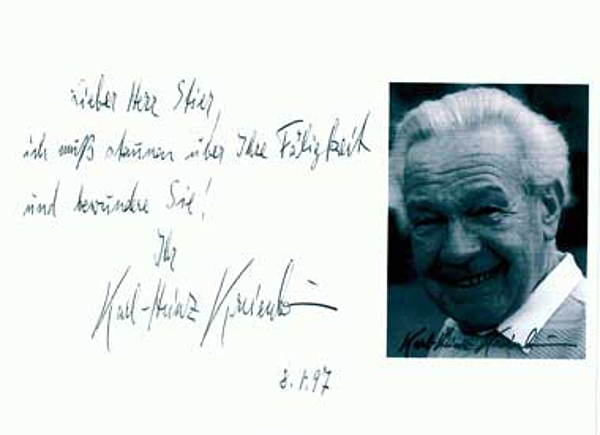 Lieber Herr Stier,
ich muß staunen über Ihre Fähigkeit
und bewundere Sie!
Ihr
Karl-Heinz
8.1.97
Karl-Heinz